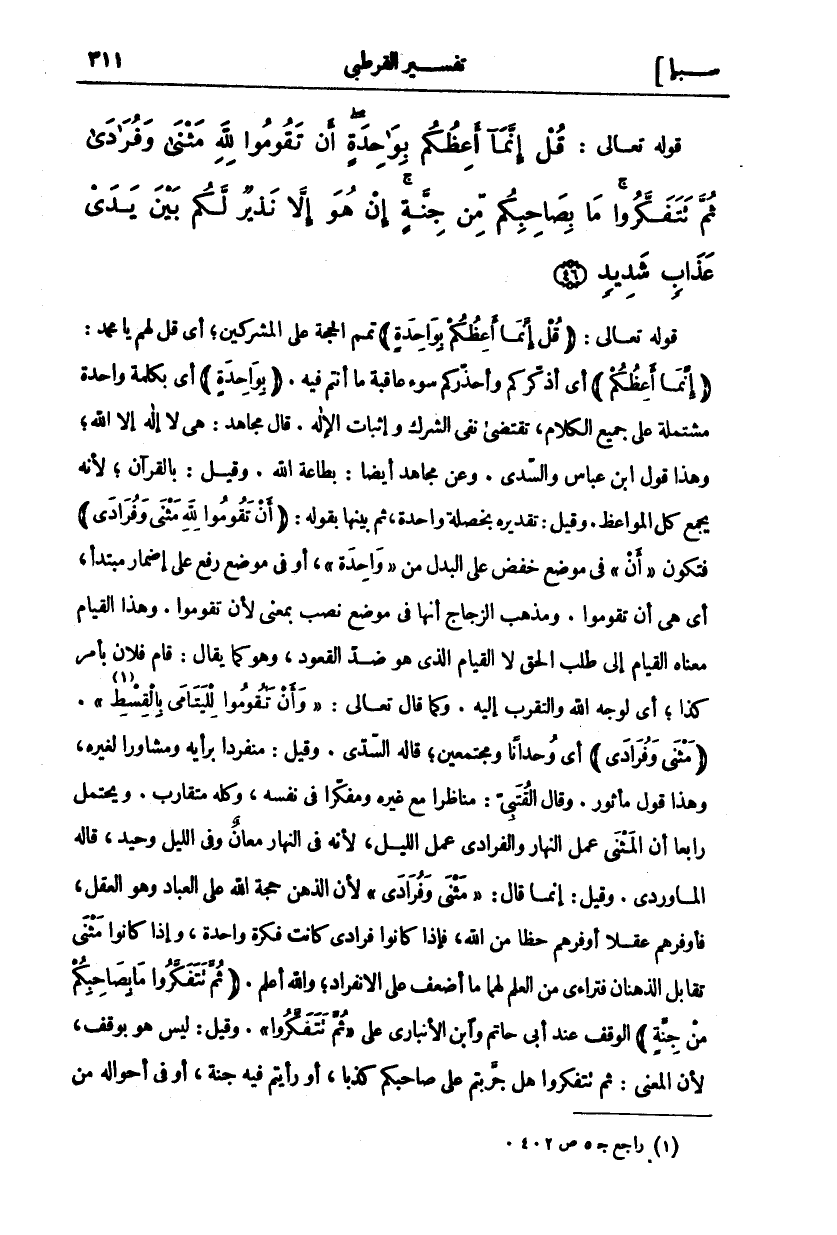 سبإ] تفسير القرطبى ٣١١
قوله تعالى : قُلْ إِنَّمَآ أَعِظُكُم بِوَٰحِدَةٍ ۖ أَن تَقُومُوا لِلَّهِ مَثْنَىٰ وَفُرَٰدَىٰ
ثُمَّ تَتَفَكَّرُوا ۚ مَا بِصَاحِبِكُم مِّن جِنَّةٍ ۚ إِنْ هُوَ إِلَّا نَذِيرٌ لَّكُم بَيْنَ يَدَىْ
عَذَابٍ شَدِيدٍ ﴿٤٦﴾
قوله تعالى : ﴿ قُلْ إِنَّمَا أَعِظُكُمْ بِوَاحِدَةٍ ﴾ تمم الحجة على المشركين؛ أى قل لهم يا محمد :
﴿ إِنَّمَا أَعِظُكُمْ ﴾ أى أذكّركم وأحذّركم سوء عاقبة ما أنتم فيه . ﴿ بِوَاحِدَةٍ ﴾ أى بكلمة واحدة
مشتملة على جميع الكلام، تقتضى نفى الشرك و إثبات الإلٰه . قال مجاهد : هى لا إلٰه إلا الله؛
وهذا قول ابن عباس والسّدى . وعن مجاهد أيضا : بطاعة الله . وقيل : بالقرآن ؛ لأنه
يجمع كل المواعظ. وقيل: تقديره بخصلة واحدة، ثم بينها بقوله : ﴿ أَنْ تَقُومُوا لِلَّهِ مَثْنَى وَفُرَادَى ﴾
فتكون « أَنْ » فى موضع خفض على البدل من « وَاحِدَة »، أو فى موضع رفع على إضمار مبتدأ،
أى هى أن تقوموا . ومذهب الزجاج أنها فى موضع نصب بمعنى لأن تقوموا . وهذا القيام
معناه القيام إلى طلب الحق لا القيام الذى هو ضدّ القعود ، وهو كما يقال : قام فلان بأمر
كذا ؛ أى لوجه الله والتقرب إليه . وكما قال تعالى : « وَأَنْ تَقُومُوا لِلْيَتَامَى بِالْقِسْطِ (١) » .
﴿ مَثْنَى وَفُرَادَى ﴾ أى وُحدانًا ومجتمعين؛ قاله السّدّى . وقيل : منفردا برأيه ومشاورا لغيره،
وهذا قول مأثور . وقال القُتَبِىّ : مناظرا مع غيره ومفكّرا فى نفسه ، وكله متقارب . ويحتمل
رابعا أن المَثْنَى عمل النهار والفرادى عمل الليل، لأنه فى النهار معانٌ وفى الليل وحيد ، قاله
الماوردى . وقيل: إنما قال: « مَثْنَى وَفُرَادَى » لأن الذهن حجة الله على العباد وهو العقل،
فأوفرهم عقلا أوفرهم حظا من الله، فإذا كانوا فرادى كانت فكرة واحدة ، وإذا كانوا مَثْنَى
تقابل الذهنان فتراءى من العلم لهما ما أضعف على الانفراد؛ والله أعلم . ﴿ ثُمَّ تَتَفَكَّرُوا مَا بِصَاحِبِكُمْ
مِنْ جِنَّةٍ ﴾ الوقف عند أبى حاتم وٱبن الأنبارى على «ثُمَّ تَتَفَكَّرُوا» . وقيل: ليس هو بوقف،
لأن المعنى : ثم تتفكروا هل جرَّبتم على صاحبكم كذبا ، أو رأيتم فيه جنة ، أو فى أحواله من
(١) راجع جـ ٥ ص ٤٠٢ .